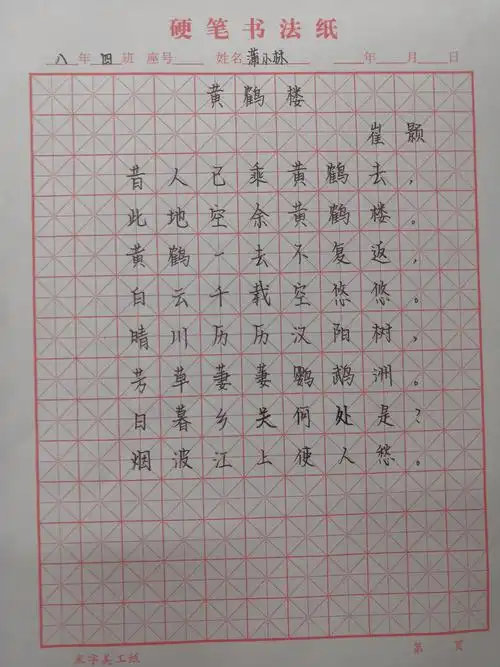 硬笔书法纸
八年四班 座号 姓名蒲小林 年 月 日
黄鹤楼
崔颢
昔人已乘黄鹤去，
此地空余黄鹤楼。
黄鹤一去不复返，
白云千载空悠悠。
晴川历历汉阳树，
芳草萋萋鹦鹉洲。
日暮乡关何处是？
烟波江上使人愁。
米字美工纸 第 页